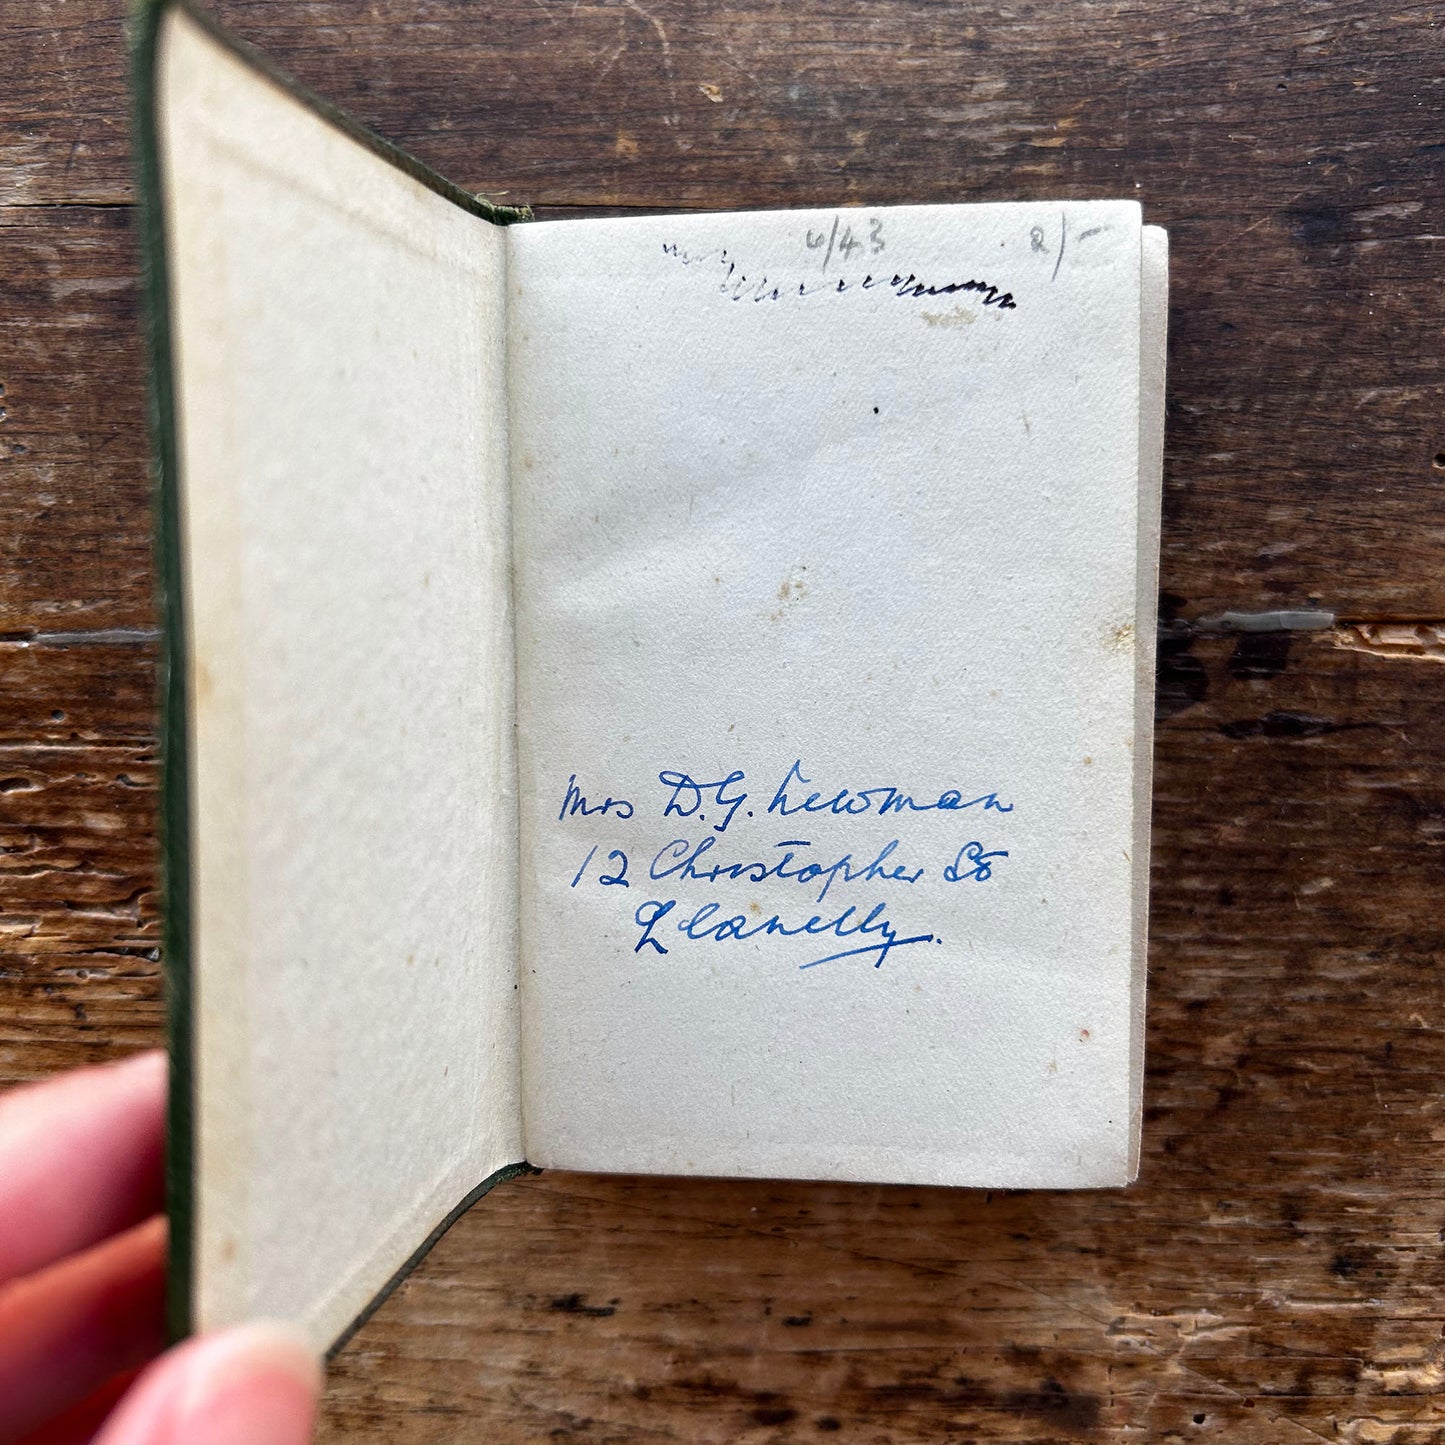 6/43 2/-
Mrs D.G. Newman
12 Christopher St
Llanelly.